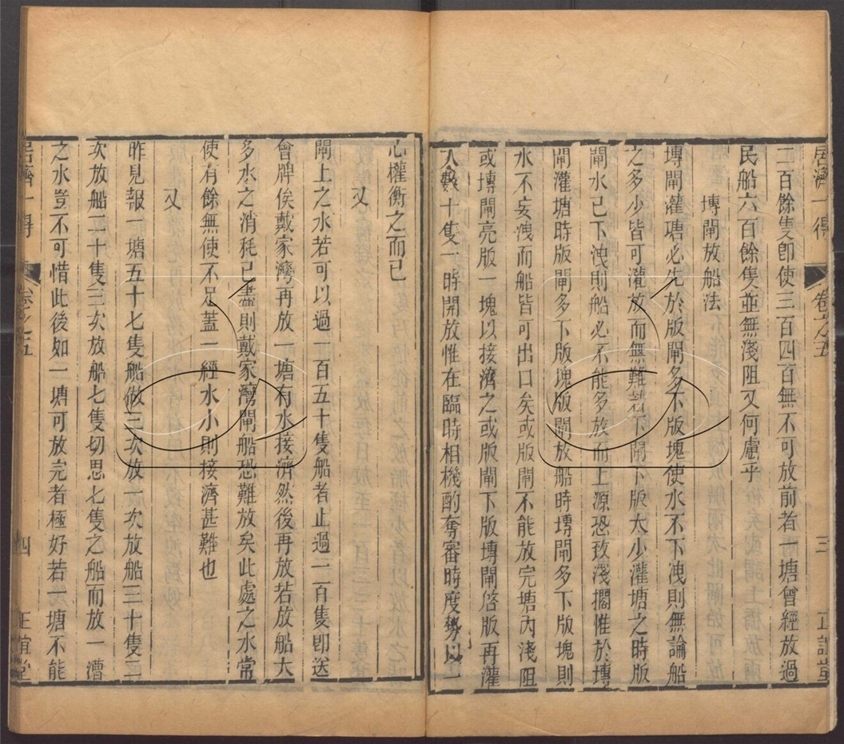 居濟一得 卷之五 三 正誼堂
二百餘隻即使三百四百無不可放前者一塘曾經放過
民船六百餘隻並無淺阻又何慮乎
塼閘放船法
塼閘灌塘必先於版閘多下版塊使水不下洩則無論船
之多少皆可灌放而無難若下閘下版太少灌塘之時版
閘水已下洩則船必不能多放而上源恐致淺擱惟於塼
閘灌塘時版閘多下版塊版閘放船時塼閘多下版塊則
水不妄洩而船皆可出口矣或版閘不能放完塘內淺阻
或塼閘亮版一塊以接濟之或版閘下版塼閘啓版再灌
人數十隻一時開放惟在臨時相機酌奪審時度勢以一
心權衡之而已
又
閘上之水若可以過一百五十隻船者止過一百隻即送
會牌俟戴家灣再放一塘有水接濟然後再放若放船大
多水之消耗已盡則戴家灣閘船恐難放矣此處之水常
使有餘無使不足蓋一經水小則接濟甚難也
又
昨見報一塘五十七隻船做三次放一次放船三十隻二
次放船二十隻三次放船七隻切思七隻之船而放一漕
之水豈不可惜此後如一塘可放完者極好若一塘不能
居濟一得 卷之五 四 正誼堂